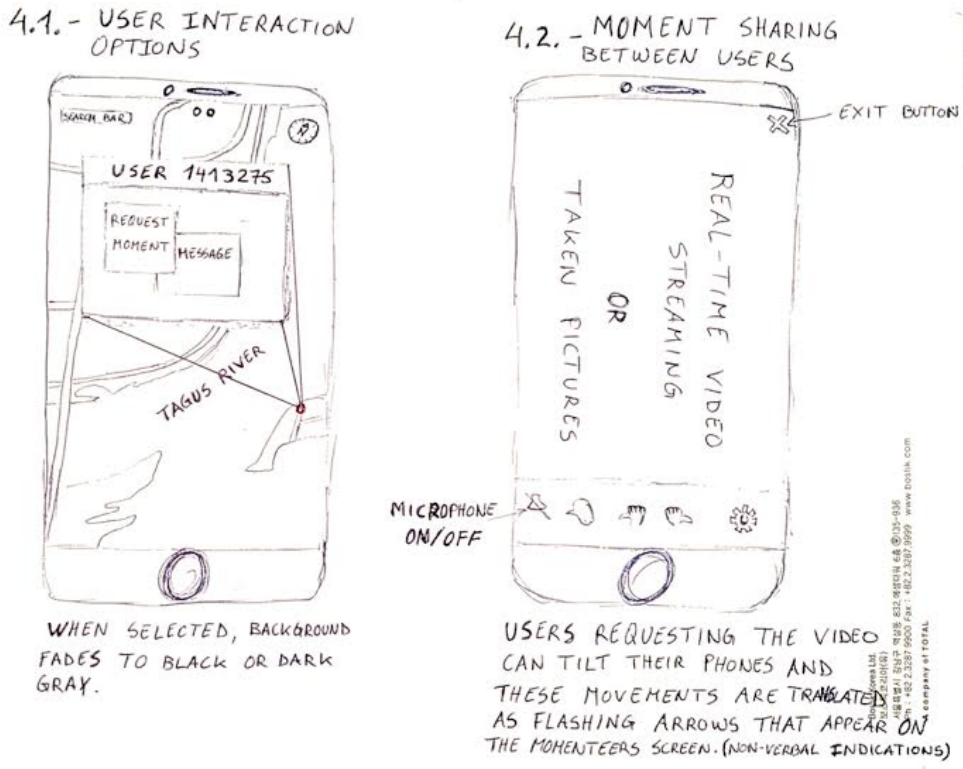 4.1.- USER INTERACTION
OPTIONS
[SEARCH BAR]
USER 1413275
REQUEST
MOMENT
MESSAGE
TAGUS RIVER
WHEN SELECTED, BACKGROUND
FADES TO BLACK OR DARK
GRAY.
4.2.- MOMENT SHARING
BETWEEN USERS
EXIT BUTTON
REAL-TIME VIDEO
STREAMING
OR
TAKEN PICTURES
MICROPHONE
ON/OFF
USERS REQUESTING THE VIDEO
CAN TILT THEIR PHONES AND
THESE MOVEMENTS ARE TRANSLATED
AS FLASHING ARROWS THAT APPEAR ON
THE MOMENTEERS SCREEN. (NON-VERBAL INDICATIONS)
Korea Ltd.
서울특별시 강남구 역삼동 832 6층 135-936
Ph : +82 2 3287 9900 Fax : +82 2 3287 9999 www.bostik.com
company of TOTAL